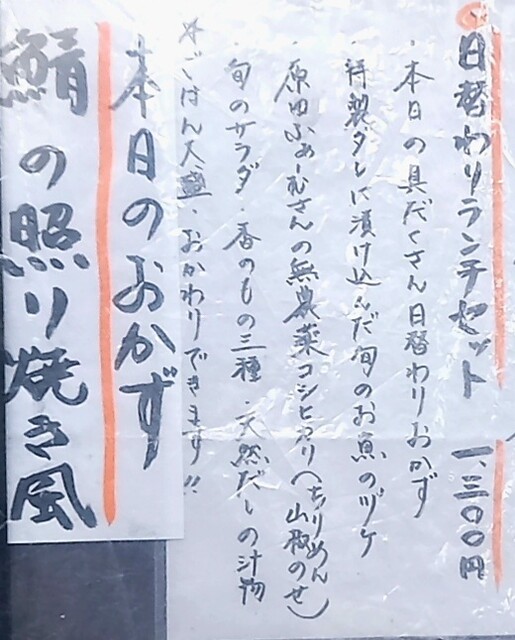 日替わりランチセット 一、三〇〇円
・本日の具だくさん日替わりおかず
・特製タレに漬け込んだ旬のお魚のヅケ
・原田ふぁーむさんの無農薬コシヒカリ(ちりめん山椒のせ)
・旬のサラダ・香のもの三種・天然だしの汁物
☆ごはん大盛・おかわりできます!!
本日のおかず
鯖の照り焼き風